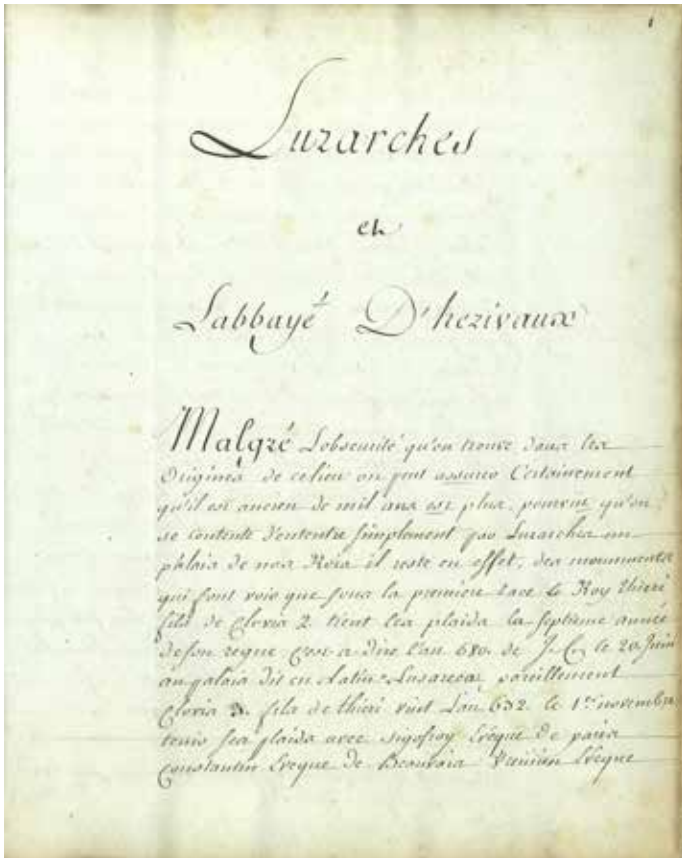 1
Luzarches
et
L'abbayé D'herivaux
Malgré L'obscurité qu'on trouve dans les
Origines de ce lieu on peut assurer Certainement
qu'il est ancien de mil ans est plus, pourvu qu'on
se contente d'entendre simplement par Luzarches un
palais de nos Rois il reste en effet, des monumentz
qui font voir que sous la premiere race le Roy thieri
fils de Clovis 2. tient les plaids la septieme année
de son regne c'est a dire l'an 680. de J. C. le 20. Juin
au palais dit en Latin Lusareca pareillement
Clovis 3. fils de thieri vint L'an 692. le 1er. novembre
tenir ses plaids avec sigofroy Evêque de paris
Constantin Evêque de Beauvais Evêque